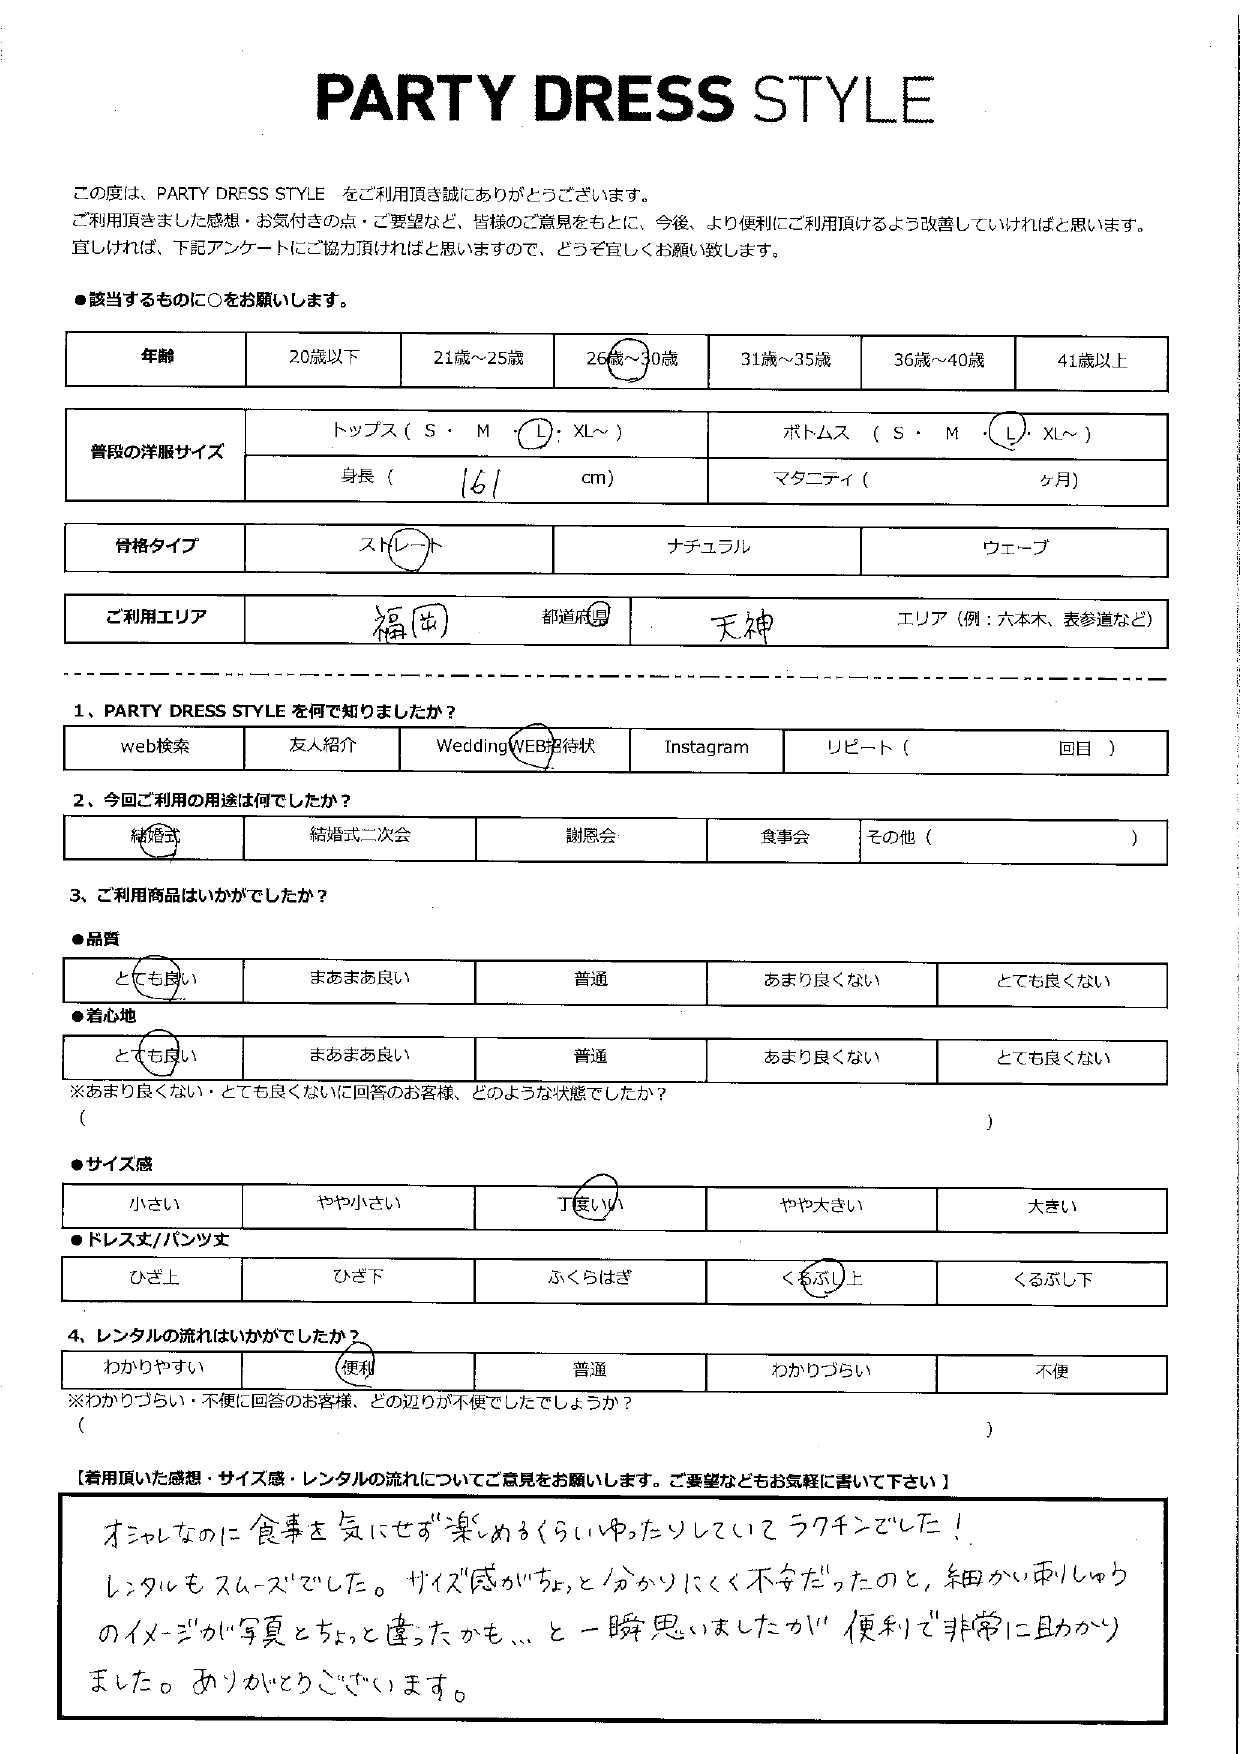 PARTY DRESS STYLE
この度は、PARTY DRESS STYLE をご利用頂き誠にありがとうございます。
ご利用頂きました感想・お気付きの点・ご要望など、皆様のご意見をもとに、今後、より便利にご利用頂けるよう改善していければと思います。
宜しければ、下記アンケートにご協力頂ければと思いますので、どうぞ宜しくお願い致します。
●該当するものに○をお願いします。
年齢 20歳以下 21歳～25歳 26歳～30歳 31歳～35歳 36歳～40歳 41歳以上
普段の洋服サイズ
トップス ( S ・ M ・ L ・ XL～ ) ボトムス ( S ・ M ・ L ・ XL～ )
身長 ( 161 cm) マタニティ ( ヶ月)
骨格タイプ ストレート ナチュラル ウェーブ
ご利用エリア 福岡 都道府県 天神 エリア（例：六本木、表参道など）
1、PARTY DRESS STYLE を何で知りましたか？
web検索 友人紹介 WeddingWEB招待状 Instagram リピート ( 回目 )
2、今回ご利用の用途は何でしたか？
結婚式 結婚式二次会 謝恩会 食事会 その他 ( )
3、ご利用商品はいかがでしたか？
●品質
とても良い まあまあ良い 普通 あまり良くない とても良くない
●着心地
とても良い まあまあ良い 普通 あまり良くない とても良くない
※あまり良くない・とても良くないに回答のお客様、どのような状態でしたか？
( )
●サイズ感
小さい やや小さい 丁度いい やや大きい 大きい
●ドレス丈/パンツ丈
ひざ上 ひざ下 ふくらはぎ くるぶし上 くるぶし下
4、レンタルの流れはいかがでしたか？
わかりやすい 便利 普通 わかりづらい 不便
※わかりづらい・不便に回答のお客様、どの辺りが不便でしたでしょうか？
( )
【着用頂いた感想・サイズ感・レンタルの流れについてご意見をお願いします。ご要望などもお気軽に書いて下さい】
オシャレなのに食事を気にせず楽しめるくらいゆったりしていてラクチンでした！
レンタルもスムーズでした。サイズ感がちょっと分かりにくく不安だったのと，細かい刺しゅう
のイメージが写真とちょっと違ったかも…と一瞬思いましたが便利で非常に助かり
ました。ありがとうございます。